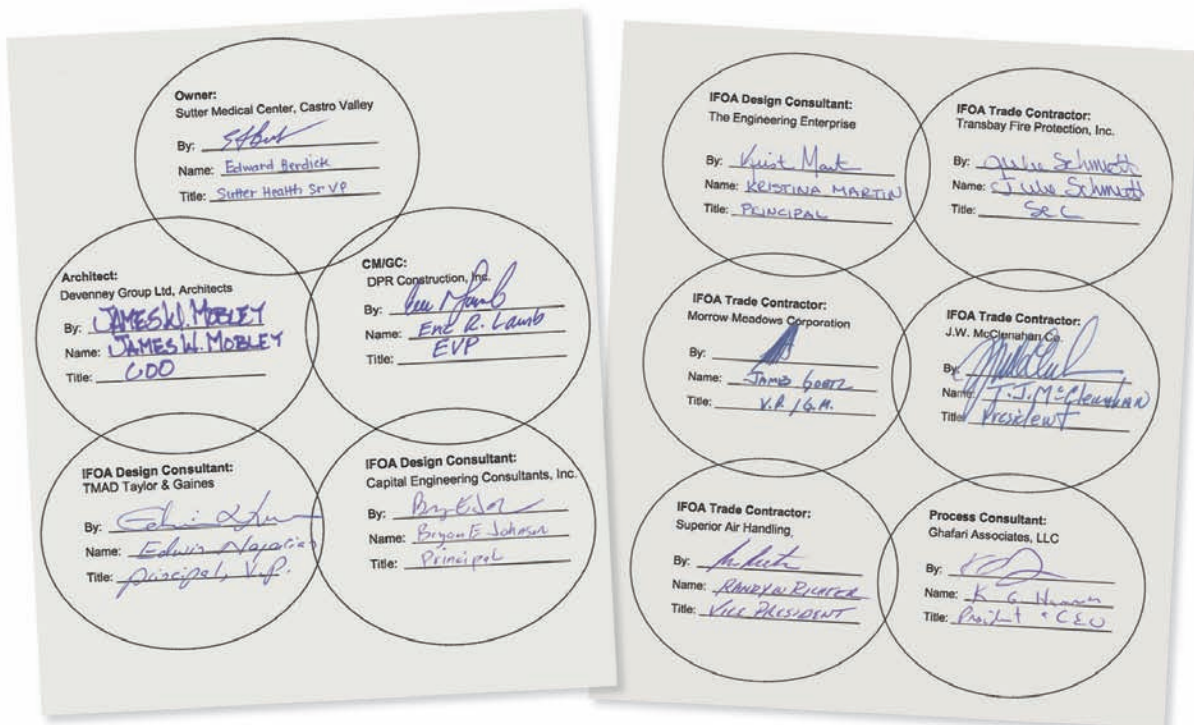 Owner:
Sutter Medical Center, Castro Valley
By:
Name: Edward Berdick
Title: Sutter Health Sr VP
Architect:
Devenney Group Ltd, Architects
By: JAMES W. MOBLEY
Name: JAMES W. MOBLEY
Title: COO
CM/GC:
DPR Construction, Inc.
By:
Name: Eric R. Lamb
Title: EVP
IFOA Design Consultant:
TMAD Taylor & Gaines
By:
Name: Edwin Najarian
Title: principal, V.P.
IFOA Design Consultant:
Capital Engineering Consultants, Inc.
By:
Name: Bryan E Johnson
Title: Principal
IFOA Design Consultant:
The Engineering Enterprise
By:
Name: KRISTINA MARTIN
Title: PRINCIPAL
IFOA Trade Contractor:
Transbay Fire Protection, Inc.
By: Julie Schmidt
Name: Julie Schmidt
Title: Sec
IFOA Trade Contractor:
Morrow-Meadows Corporation
By:
Name: JAMES
Title: V.P. / G.M.
IFOA Trade Contractor:
J.W. McClenahan Co.
By:
Name: J.J. McClenahan
Title: President
IFOA Trade Contractor:
Superior Air Handling
By:
Name: RANDY W RICHTER
Title: VICE PRESIDENT
Process Consultant:
Ghafari Associates, LLC
By:
Name: K G
Title: President & CEO